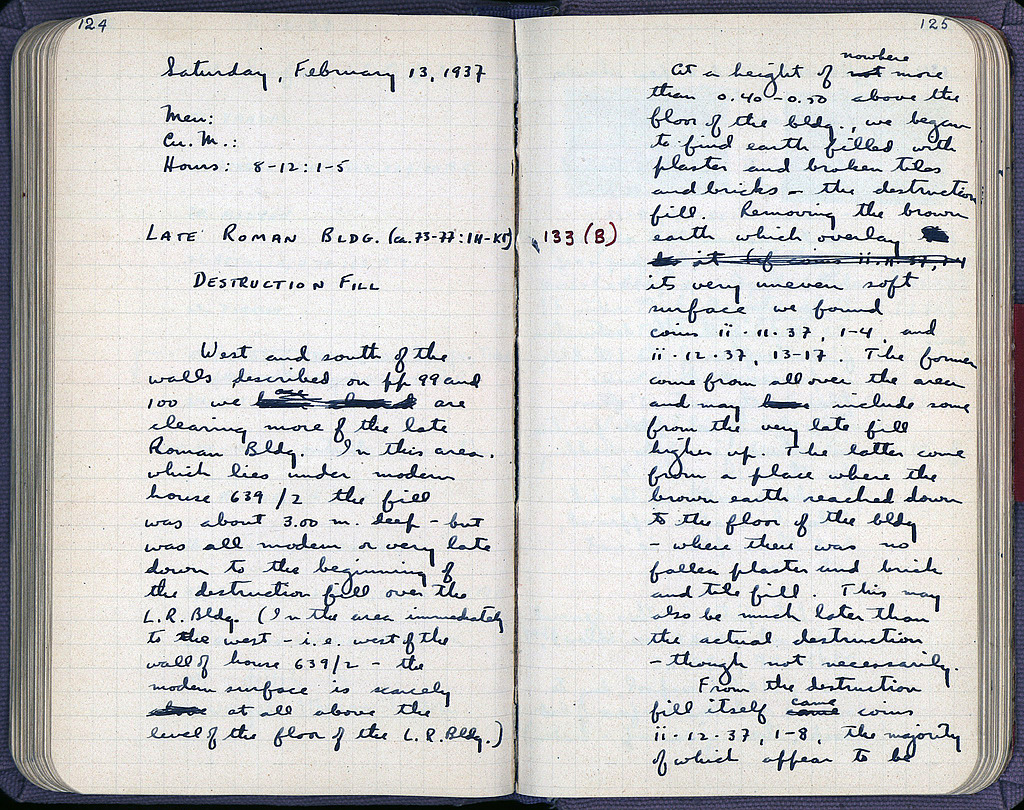 124
Saturday, February 13, 1937
Men:
Cu. M.:
Hours: 8-12:1-5
LATE ROMAN BLDG. (ca. 73-77:IH-KE)
DESTRUCTION FILL
West and south of the
walls described on pp 99 and
100 we are
clearing more of the late
Roman Bldg. In this area.
which lies under modern
house 639/2 the fill
was about 3.00 m. deep - but
was all modern or very late
down to the beginning of
the destruction fill over the
L.R. Bldg. (In the area immediately
to the west - i.e. west of the
wall of house 639/2 - the
modern surface is scarcely
at all above the
level of the floor of the L.R. Bldg.)
125
133 (B)
nowhere
At a height of not more
than 0.40-0.50 above the
floor of the bldg., we began
to find earth filled with
plaster and broken tiles
and bricks - the destruction
fill. Removing the brown
earth which overlay
ii.11.37, 1-4
its very uneven soft
surface we found
coins ii.11.37, 1-4, and
ii.12.37, 13-17. The former
come from all over the area
and may have include some
from the very late fill
higher up. The latter come
from a place where the
brown earth reached down
to the floor of the bldg
- where there was no
fallen plaster and brick
and tile fill. This may
also be much later than
the actual destruction
- though not necessarily.
From the destruction
fill itself came coins
ii.12.37, 1-8, the majority
of which appear to be